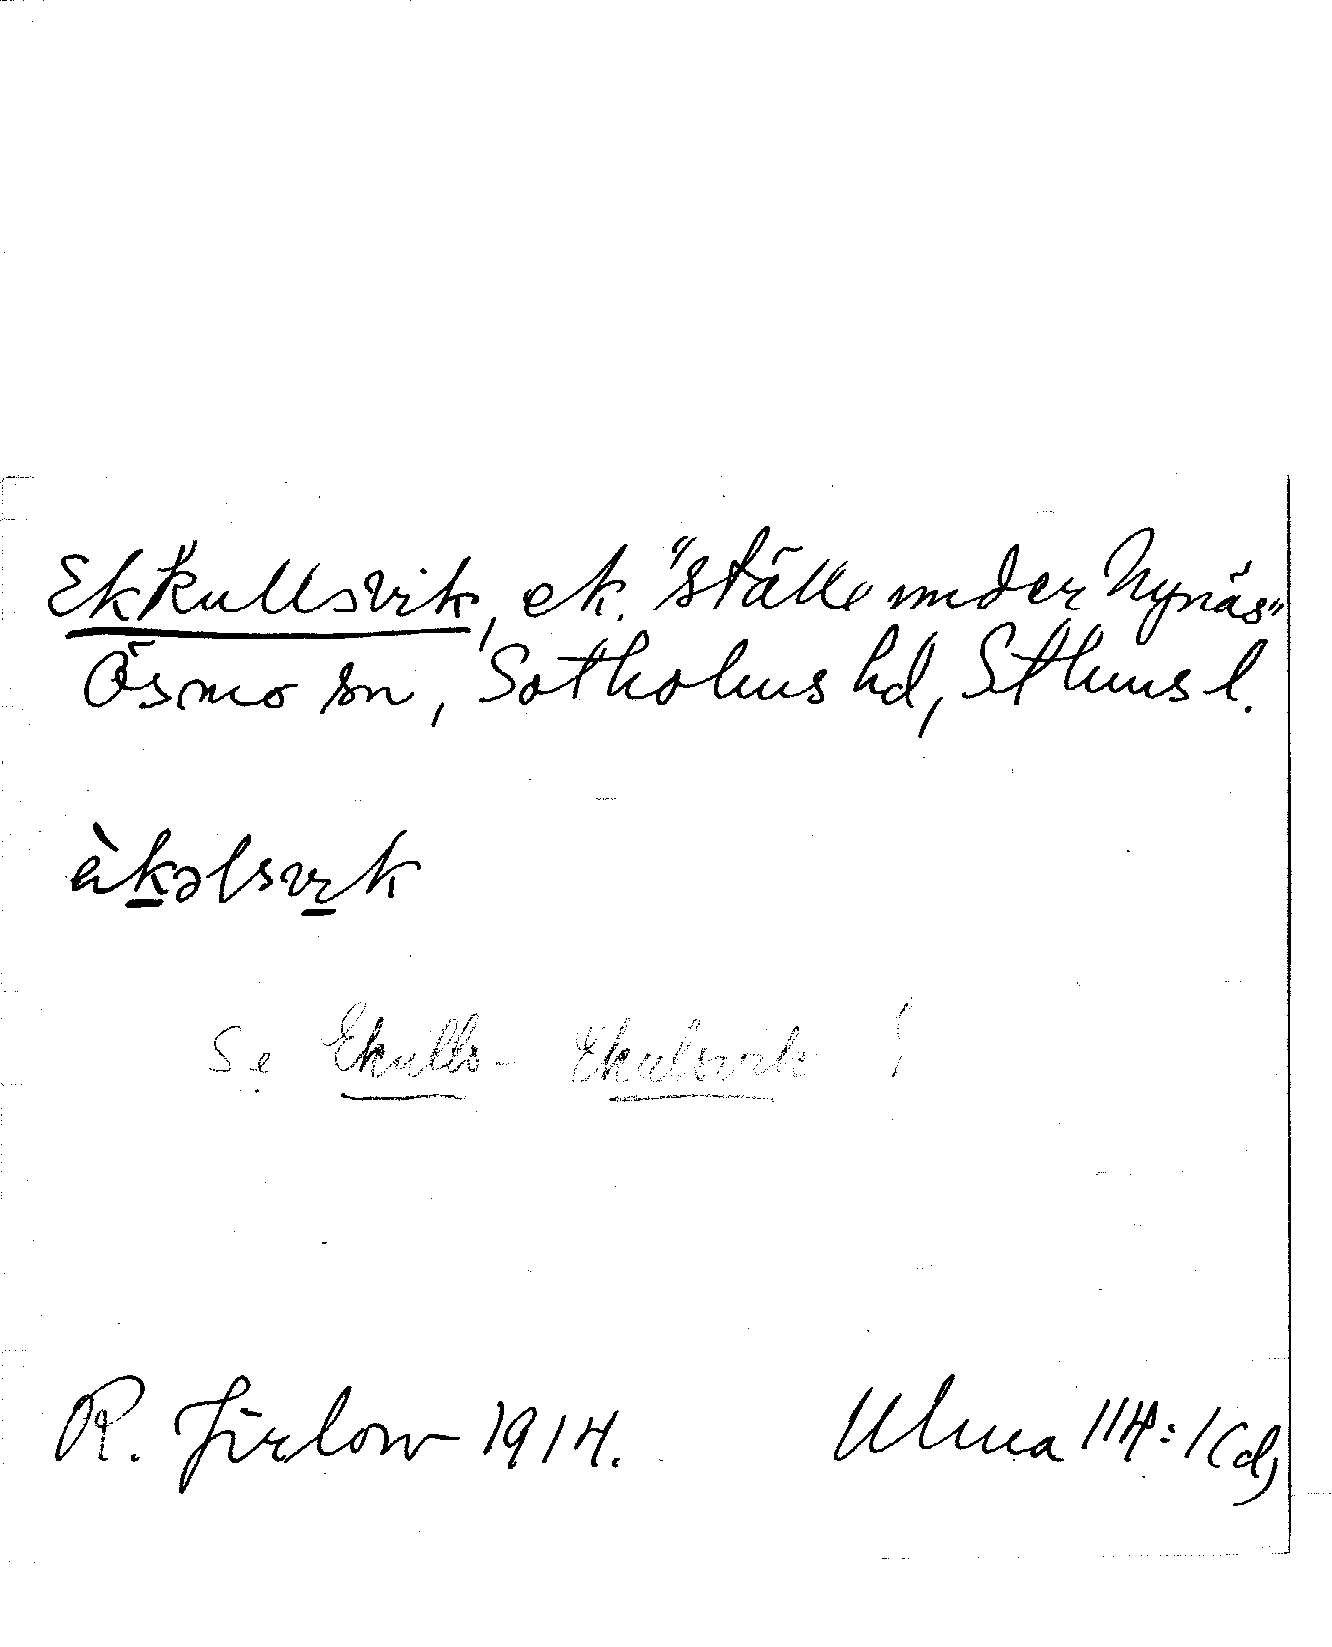 Ekkullsvik, ek. "ställe under Nynäs"
Ösmo sn, Sotholms hd, Sthms l.
èkəlsvɪk
Se Ekulls- Ekulsvik !
R. Jirlow 1914. Ulma 114:1(d)